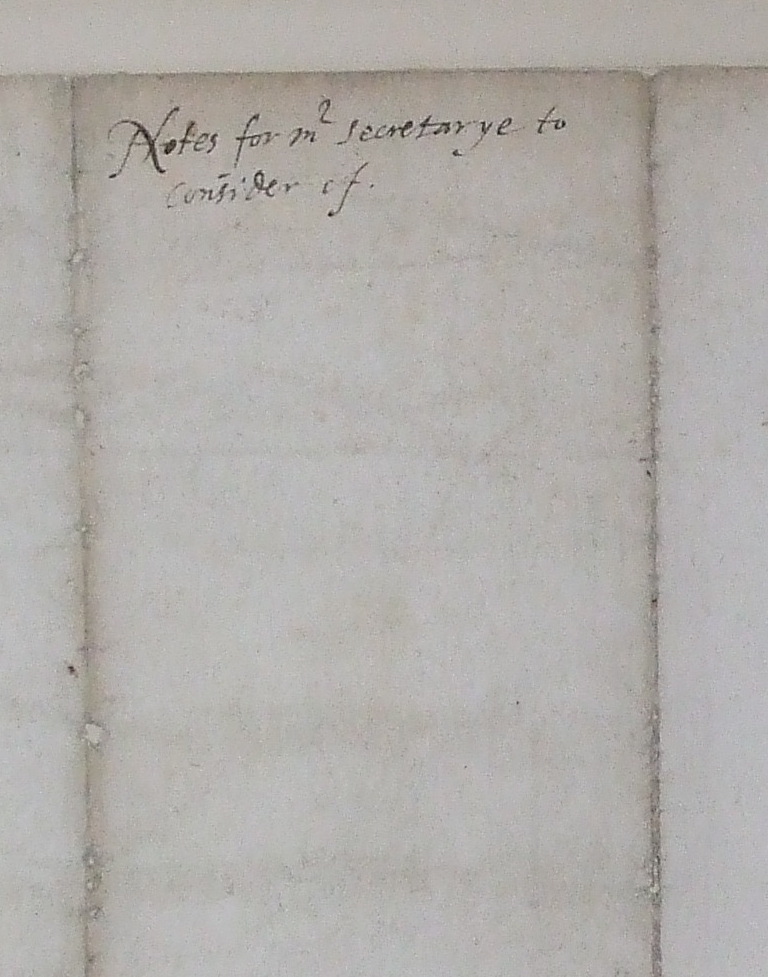 Notes for mʳ secretarye to
consider of.